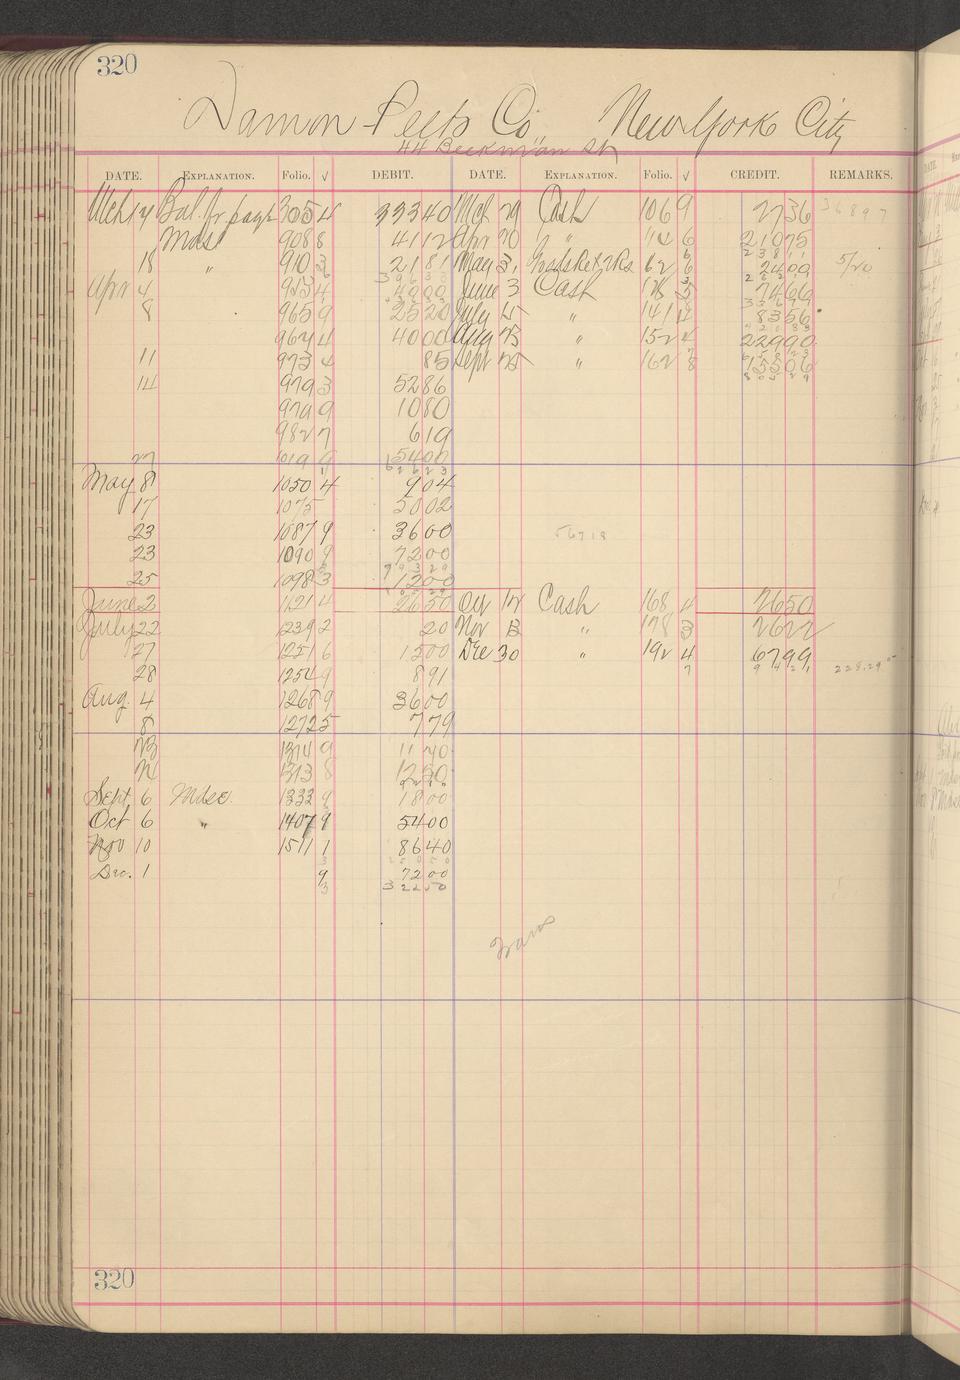 320
Damon Peets Co., New York City
44 Beekman St
DATE. EXPLANATION. Folio. √ DEBIT. DATE. EXPLANATION. Folio. √ CREDIT. REMARKS.
Mch 14 Bal. fr page 305 4 333 40 Mch 29 Cash 106 9 27 36 36897
Mdse 908 8 41 12 Apr 20 " 114 6 210 75
18 " 910 3 21 81 May 31 62 6 24 00 5/20
Apr 4 943 4 40 00 June 3 Cash 128 5 74 66
8 965 9 25 20 July 5 " 141 83 56
964 4 40 00 Aug 23 " 152 4 229 90
11 973 4 85 Sept 25 " 162 8 155 06
14 979 3 52 86
979 9 10 80
982 7 6 19
27 1019 9 54 00
62623
May 8 1050 4 9 04
17 1075 50 02
23 1087 9 36 00 56718
23 1090 9 72 00
25 1098 3 12 00
June 2 1121 4 26 50 Oct 12 Cash 168 4 26 50
July 22 1239 2 20 Nov 12 " 178 3 26 22
27 1251 6 15 00 Dec 30 " 192 4 67 99
28 1254 9 8 91 22829
Aug. 4 1268 9 36 00
8 1272 5 7 79
23 1314 9 11 40
1313 8 12 50
Sept 6 Mdse. 1332 9 18 00
Oct 6 " 1407 9 54 00
Nov 10 1511 1 86 40
Dec. 1 9 72 00
3 322 50
Trans
320